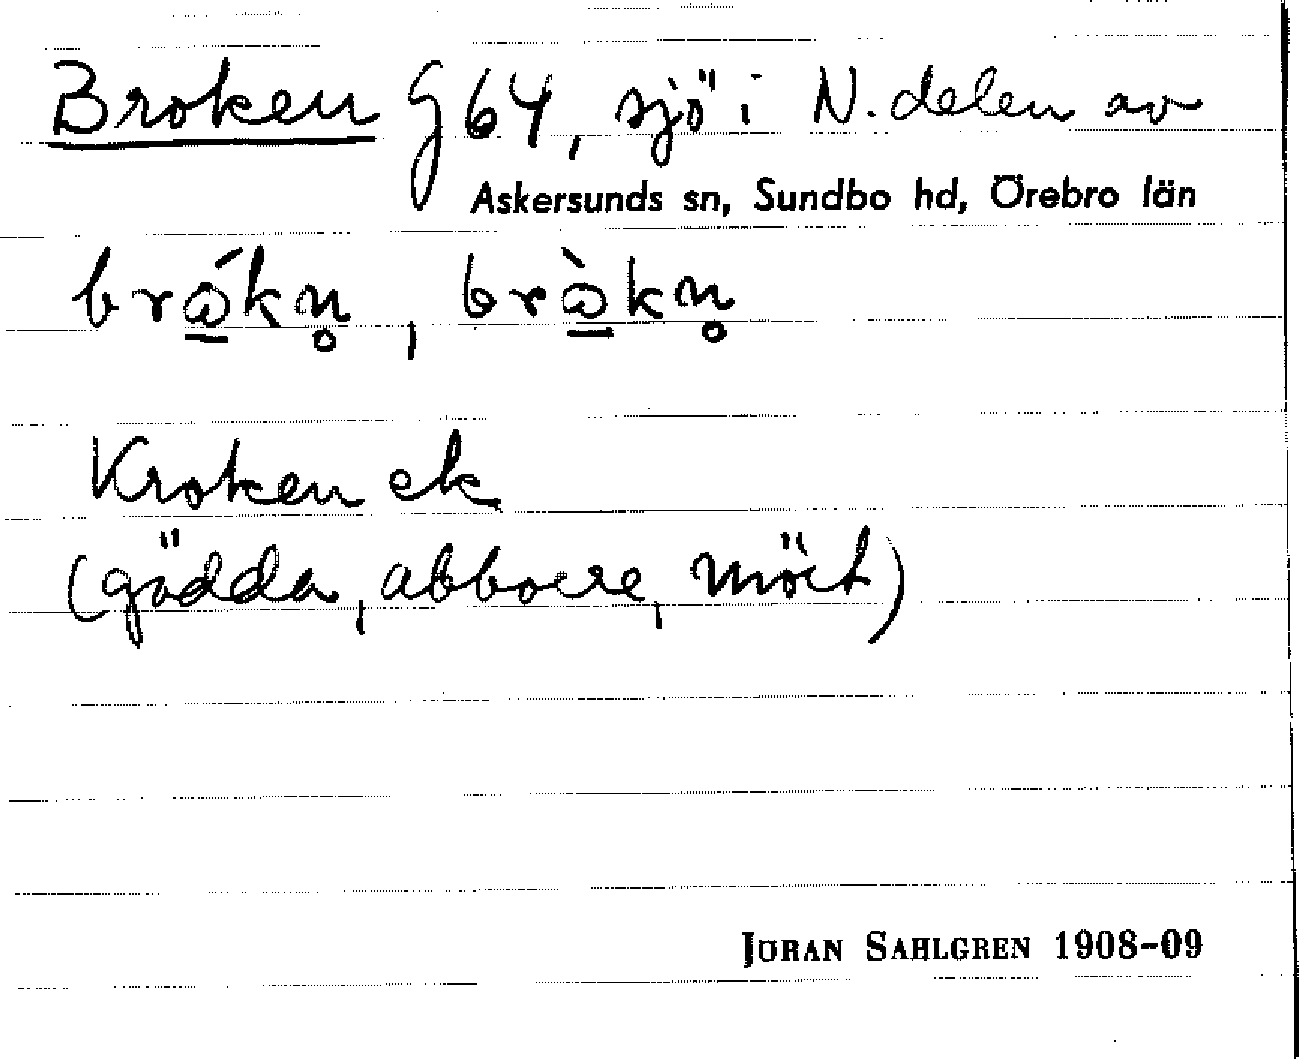 Broken G 64, sjö i N. delen av
Askersunds sn, Sundbo hd, Örebro län
brⱥ́kn̥, brⱥ̀kn̥
Kroken ek
(gädda, abborre, mört)
JÖRAN SAHLGREN 1908-09